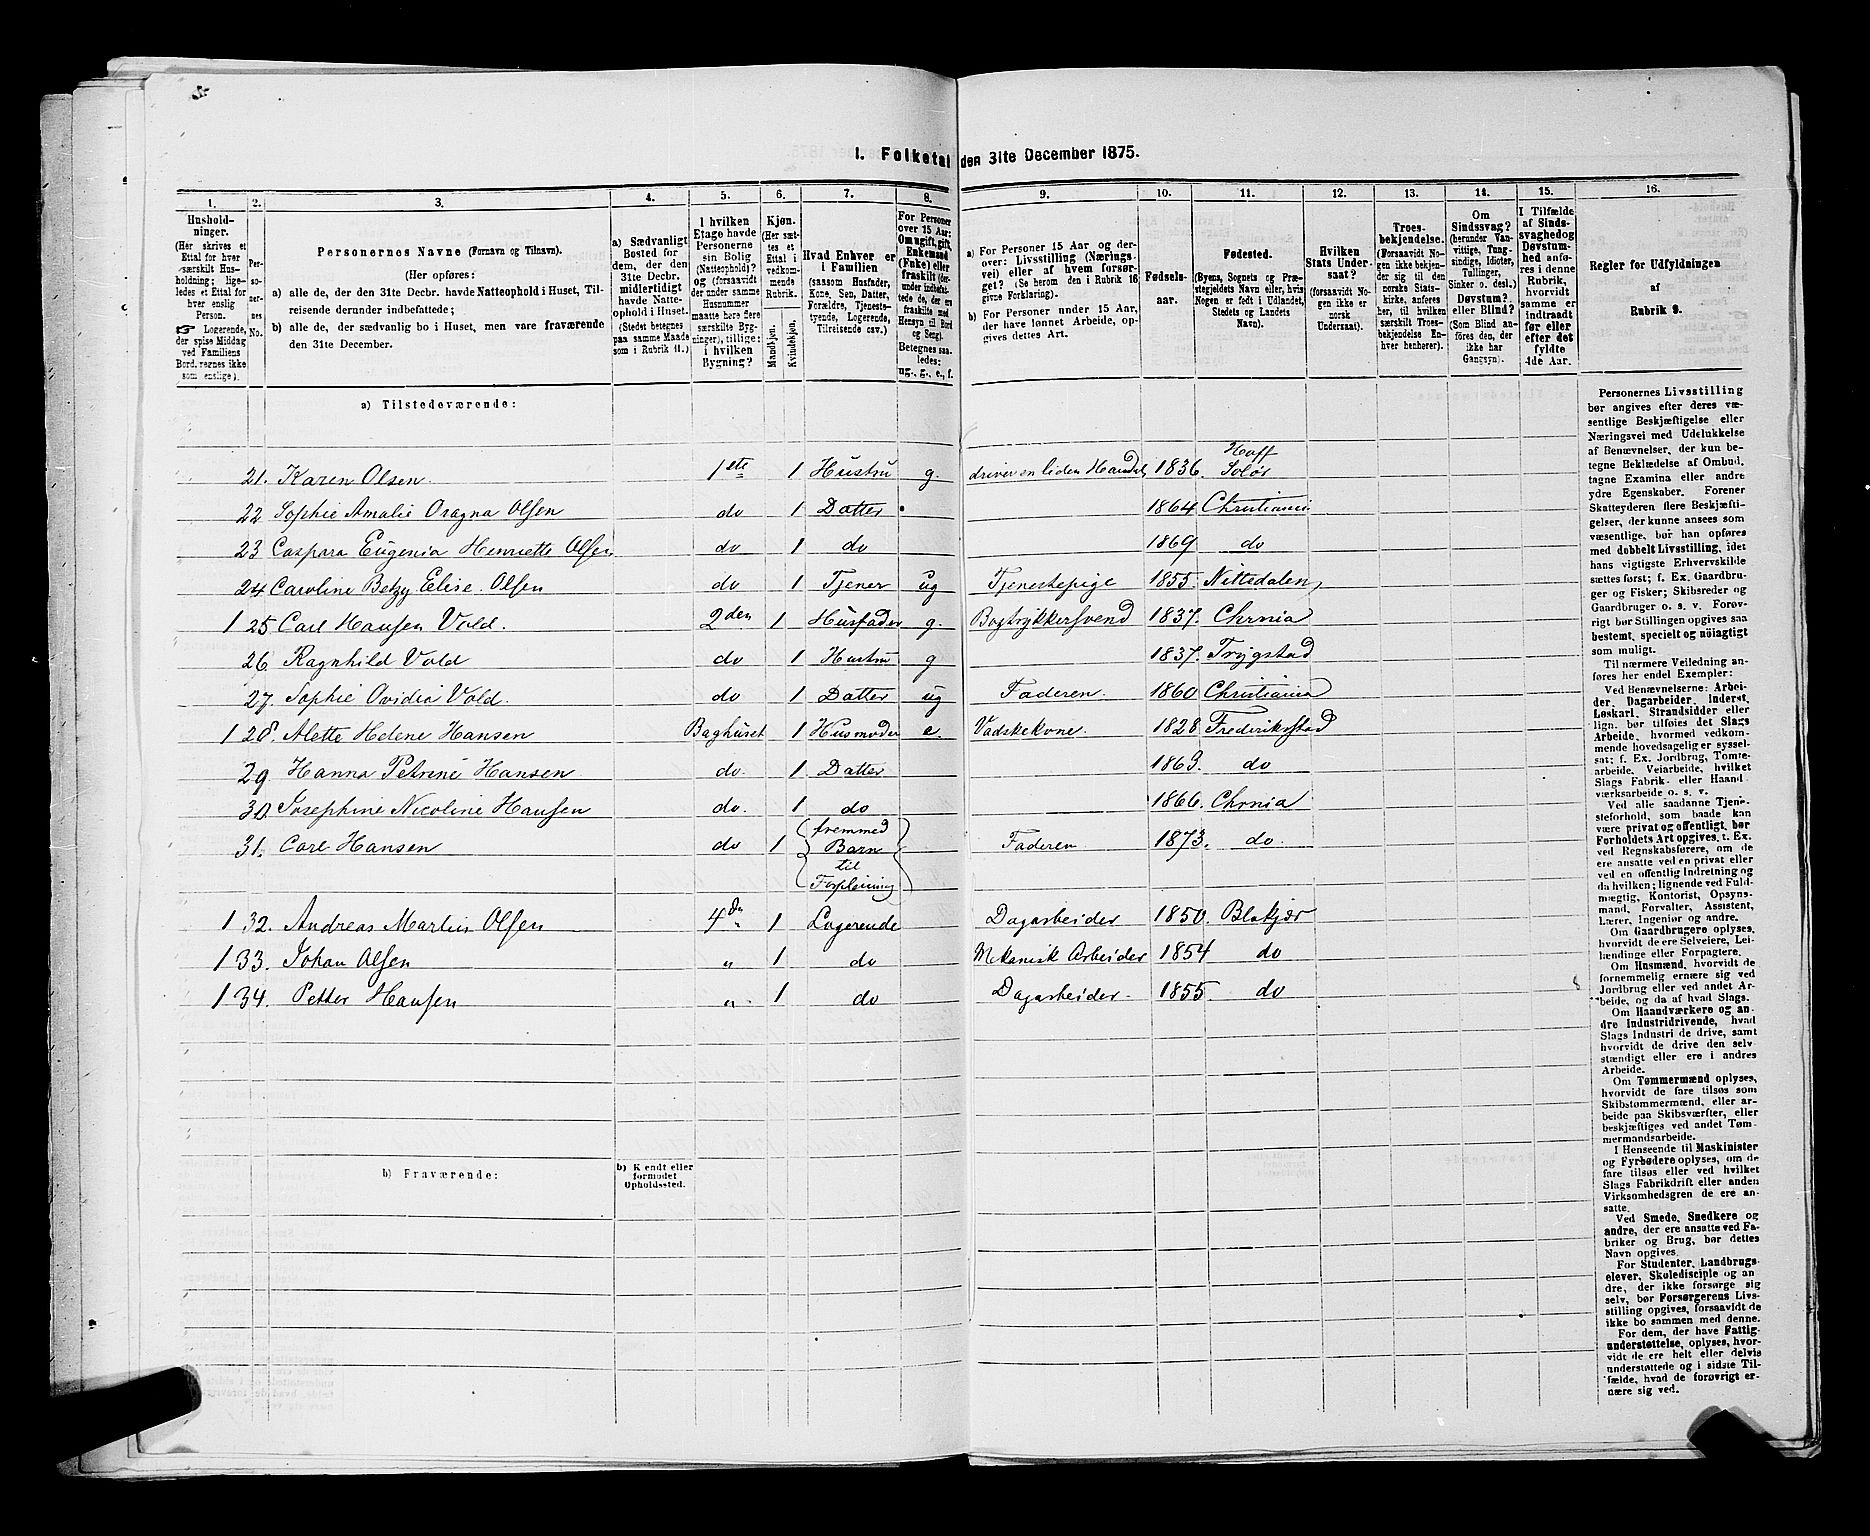 1. Folketal den 31te December 1875.
1. 2. 3. 4. 5. 6. 7. 8. 9. 10. 11. 12. 13. 14. 15. 16.
Hushold-
ninger.
(Her skrives et
Ettal for hver
særskilt Hus-
holdning; lige-
ledes et Ettal for
hver enslig
Person.
Logerende,
der spise Middag
ved Familiens
Bord, regnes ikke
som enslige).
Per-
so-
ner-
nes
No.
Personernes Navne (Fornavn og Tilnavn).
(Her opføres:
a) alle de, der den 31te Decbr. havde Natteophold i Huset, Til-
reisende derunder indbefattede;
b) alle de, der sædvanlig bo i Huset, men vare fraværende
den 31te December.
a) Sædvanligt
Bosted for
dem, der den
31te Decbr.
midlertidigt
havde Natte-
ophold i Huset.
(Stedet betegnes
paa samme Maade
som i Rubrik 11.)
I hvilken
Etage havde
Personerne
sin Bolig
(Natteophold)?
og (forsaavidt
der under samme
Husnummer
maatte høre flere
særskilte Byg-
ninger), tillige:
i hvilken
Bygning?
Kjøn.
(Her sæt-
tes et
Ettal i
vedkom-
mende
Rubrik.
Mandkjøn.
Kvindekjøn.
Hvad Enhver er
i Familien
(saasom Husfader,
Kone, Søn, Datter,
Forældre, Tjeneste-
tyende, Logerende,
Tilreisende osv.)
For
Personer
over 15 Aar:
Om ugift, gift,
Enkemand
(Enke) eller
fraskilt (der-
under indbefat-
tede de, der ere
fraskilte med
Hensyn til Bord
og Seng).
Betegnes saa-
ledes:
ug., g., e., f.
a) For Personer 15 Aar og der-
over: Livsstilling (Nærings-
vei) eller af hvem forsør-
get? (Se herom den i Rubrik 16
givne Forklaring).
b) For Personer under 15 Aar,
der have lønnet Arbeide, op-
gives dettes Art.
Fødsels-
aar.
Fødested.
(Byens, Sognets og Præ-
stegjeldets Navn eller, hvis
Nogen er født i Udlandet,
Stedets og Landets
Navn).
Hvilken
Stats Under-
saat?
(forsaavidt No-
gen ikke er
norsk
Undersaat).
Troes-
bekjendelse.
(Forsaavidt No-
gen ikke bekjen-
der sig til den
norske Stats-
kirke, anføres
her, til hvilken
særskilt Troes-
bekjendelse En-
hver henhører).
Om
Sindssvag?
(herunder Van-
vittige, Tung-
sindige, Idioter,
Tullinger,
Sinker o. desl.)
Døvstum?
eller Blind?
(Som Blind an-
føres den, der
ikke har
Gangsyn).
I Tilfælde
af Sinds-
svaghed og
Døvstum-
hed anfø-
res i denne
Rubrik,
hvorvidt
samme er
indtraadt
før eller
efter det
fyldte
4de Aar.
Regler for Udfyldningen
af
Rubrik 9.
a) Tilstedeværende:
21. Karen Olsen. 1ste 1 Hustru g. driver en liden Handel 1836. Hoff Solør
22 Sophie Amalie Oragna Olsen do 1 Datter 1864 Christiania
23 Caspara Eugenia Henriette Olsen do 1 do 1869 do
24 Caroline Betzy Elise. Olsen do 1 Tjener ug Tjenestepige 1855. Nittedalen,
1 25 Carl Hansen Vold. 2den 1 Husfader g. Bogtrykkersvend 1837. Chrnia
26 Ragnhild Vold do 1 Hustru g 1837. Trygstad
27. Sophie Ovidia Vold. do 1 Datter ug Faderen. 1860 Christiania
1 28. Alette Helene Hansen Baghuset 1 Husmoder e. Vadskekone. 1828. Frederiksstad
29 Hanna Petrine Hansen do. 1 Datter 1863. do
30 Josephine Nicoline Hansen do. 1 do 1866. Chrnia
31. Carl Hansen do 1 fremmed Barn til Forpleining Faderen 1873. do.
1 32. Andreas Martin Olsen 4de 1 Logerende Dagarbeider 1850. Blakjær
1 33. Johan Olsen " 1 do Mekanisk Arbeider 1854 do
1 34. Petter Hansen " 1 do Dagarbeider. 1855. do
b) Fraværende:
b) Kjendt eller
formodet
Opholdssted.
Personernes Livsstilling
bør angives efter deres væ-
sentlige Beskjæftigelse eller
Næringsvei med Udelukkelse
af Benævnelser, der kun be-
tegne Beklædelse af Ombud,
tagne Examina eller andre
ydre Egenskaber. Forener
Skatteyderen flere Beskjæfti-
gelser, der kunne ansees som
væsentlige, bør han opføres
med dobbelt Livsstilling, idet
hans vigtigste Erhvervskilde
sættes først; f. Ex. Gaardbru-
ger og Fisker; Skibsreder og
Gaardbruger o. s. v. Forøv-
rigt bør Stillingen opgives saa
bestemt, specielt og nöiagtigt
som muligt.
Til nærmere Veiledning an-
føres her endel Exempler:
Ved Benævnelserne: Arbei-
der, Dagarbeider, Inderst,
Løskarl, Strandsidder eller
lign. bør tilføies det Slags
Arbeide, hvormed vedkom-
mende hovedsagelig er syssel-
sat; f. Ex. Jordbrug, Tomte-
arbeide, Veiarbeide, hvilket
Slags Fabrik- eller Haand
værksarbeide o. s. v.
Ved alle saadanne Tjene-
steforhold, som baade kan
være privat og offentligt, bør
Forholdets Art opgives, t. Ex.
ved Regnskabsførere, om de
ere ansatte ved en privat eller
ved en offentlig Indretning og
da hvilken; lignende ved Fuld-
mægtig, Kontorist, Opsyns-
mand, Forvalter, Assistent,
Lærer, Ingeniør og andre.
Om Gaardbrugere oplyses,
hvorvidt de ere Selveiere, Lei-
lændinge eller Forpagtere.
Om Husmænd, hvorvidt de
fornemmelig ernære sig ved
Jordbrug eller ved andet Ar-
beide, og da af hvad Slags.
Om Haandværkere og an-
dre Industridrivende, hvad
Slags Industri de drive, samt
hvorvidt de drive den selv-
stændigt eller ere i andres
Arbeide.
Om Tømmermænd oplyses,
hvorvidt de fare tilsøs som
Skibstømmermænd, eller ar-
beide paa Skibsværfter, eller
beskjæftiges ved andet Tøm-
mermandsarbeide.
I Henseende til Maskinister
og Fyrbødere oplyses, om de
fare tilsøs eller ved hvilket
Slags Fabrikdrift eller anden
Virksomhedsgren de ere an-
satte.
Ved Smede, Snedkere og
andre, der ere ansatte ved Fa-
briker og Brug, bør dettes
Navn opgives.
For Studenter, Landbrugs-
elever, Skoledisciple og an-
dre, der ikke forsørge sig
selv, bør Forsørgerens Livs-
stilling opgives, forsaavidt de
ikke bo sammen med denne.
For dem, der have Fattig-
understøttelse, oplyses, hvor-
vidt de ere helt eller delvis
understøttede og i sidste Til-
fælde, hvad de forøvrigt er-
nære sig ved.